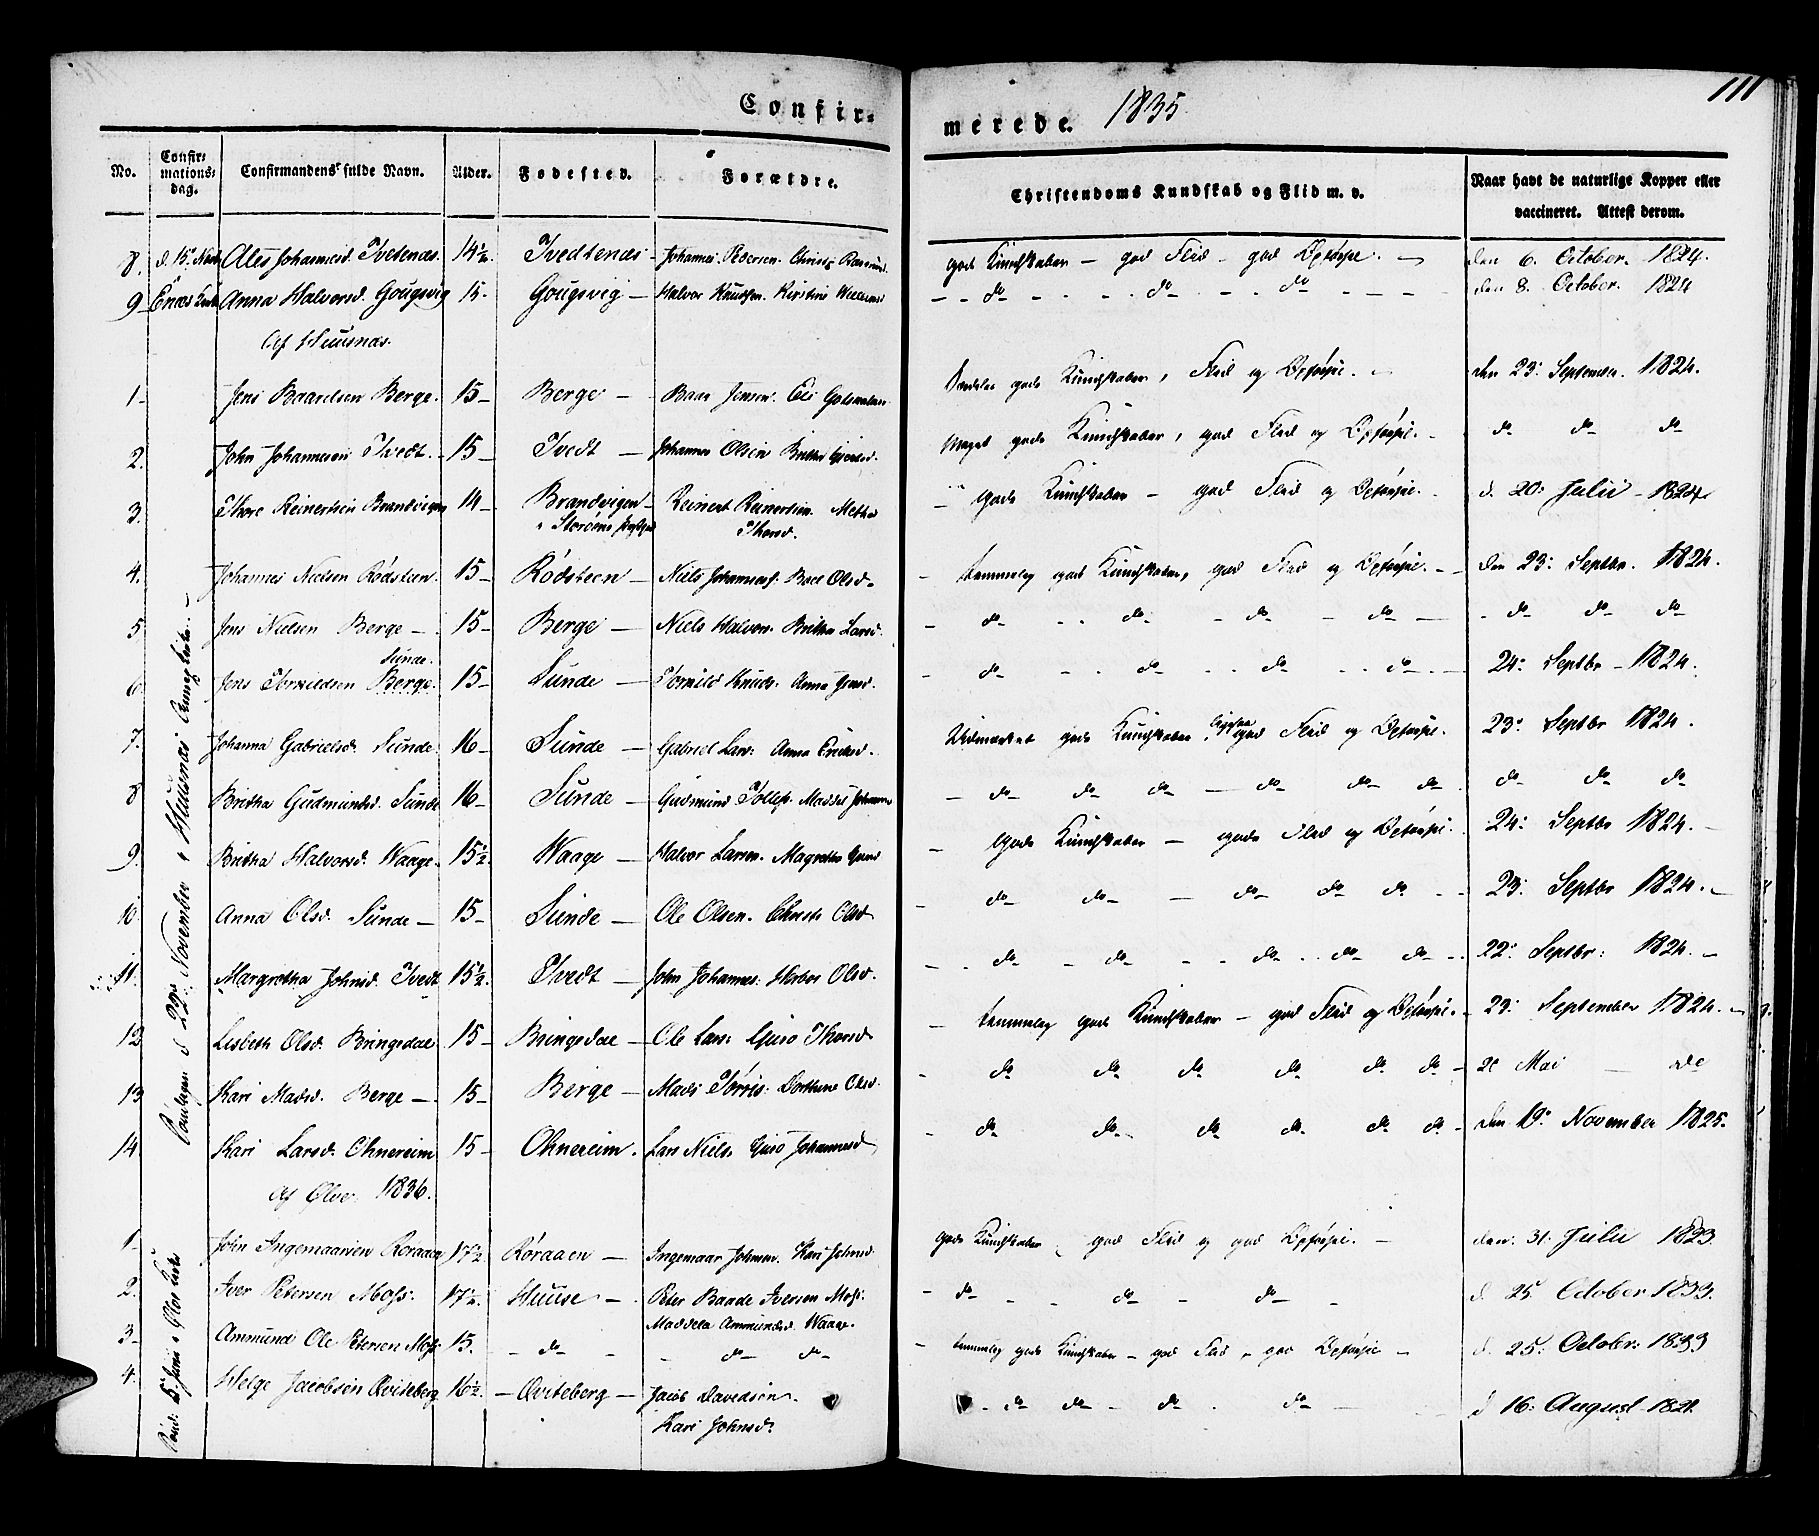 Confirmerede. 1835. 111
No. Confirmationsdag. Confirmandens fulde Navn. Alder. Fødested. Forældre. Christendoms Kundskab og Flid m. v. Naar havt de naturlige Kopper eller vaccineret. Attest derom.
8. d. 15. Ales Johannesd. Tvetenæs. 14½ Tvedtenæs Johannes Pedersen. gode Kundskaber – god Flid – god Opførsel. den 6. October. 1824.
9 Enæs Kirke Anna Halvorsd. Gougsvig 15. Gougsvig – Halvor Knudsen. Kirstine do do do den 8. October. 1824
Af Huusnæs.
1 – Jens Baardsen Berge. 15 – Berge – Baar Jensen. Eli gode Kundskaber, Flid og Opførsel. den 23: September. 1824.
2. John Johannesen Tvedt. 15 – Tvedt – Johannes Olsen Britha Meget gode Kundskaber, god Flid og Opførsel. – do do do
3. Thore Reinertsen Brandvigen 14 – Brandvigen – Reinert Reinertsen. Metha – gode Kundskaber – god Flid og Opførsel. d. 20: Julii – 1824
Thorsd.
4. Johannes Nielsen Rødsteen. 15 – Rødsteen – Niels Johanness. Boel Olsd. – temmelig gode Kundskaber, god Flid og Opførsel. – den 23: Septbr. 1824.
5 Jens Nielsen Berge – 15 – Berge – Niels Halvors. Britha Larsd. – do do do do – do do do
Sunde.
6 Jens Torkildsen Berge. 15 – Sunde – Torkild Knuds. Anna – do do do do 24: Septbr – 1824.
7. Johanna Gabrielsd. Sunde. 16 – Sunde – Gabriel Lars: Anna Ericksd. Udmærket gode Kundskaber, god Flid og Opførsel. 23: Septbr 1824.
8 Britha Gudmundsd. Sunde 16 – Sunde – Gudmund Tollefs. – do do do – do do do do do do
9. Britha Halvorsd. Waage. 15½ Waage – Halvor Larsen. Magretha – gode Kundskaber – gode Flid og Opførsel. 24: Septbr 1824. –
10. Anna Olsd. Sunde – 15 – Sunde – Ole Olsen. Christi Olsd – do do – do do do 23: Septbr 1824. –
11. Margretha Johnsd. Tvedt 15½. Tvedt – John Johannes: Olsd. do – do do do do 22: Septbr: 1824. –
12 Lisbeth Olsd. Bringedal 15 – Bringedal – Ole Lars: Guro Thorsd – temmelig gode Kundskaber – god Flid og Opførsel. – 23: September 1824. –
13 Kari Madsd. Berge – 15 – Berge – Mads Tørris: Dorthene Olsd. – do do do do do do – Mai – do
14. Kari Larsd. Ohnereim 15 – Ohnereim. Lars Niels. Guro Johannesd – do do do do do do – den 19: November 1825.
d 22de November i Huusnæs
Af Ølve. 1836.
1 – John Ingemaarsen Røraaen 17½ Røraaen – Ingemaar Johnsen. Kari Johnsd. gode Kundskaber, god Flid og god Opførsel. – den: 31: Julii 1833.
2. Iver Petersen Moss. 17½. Huuse – Peter Baade Iversen Moss: – do do – do – d. 25 October 1833.
Maddela Ammundsd. Waage.
3 – Ammund Ole Petersen Moss 15. – do – do do – temmelig gode Kundskaber – god Flid – god Opførsel – d. 25: October: 1833
4. Helge Jacobsen Qviteberg 16½ – Qviteberg – Jacob Davidsen. do do do do d 16: August
Kari Johnsd.